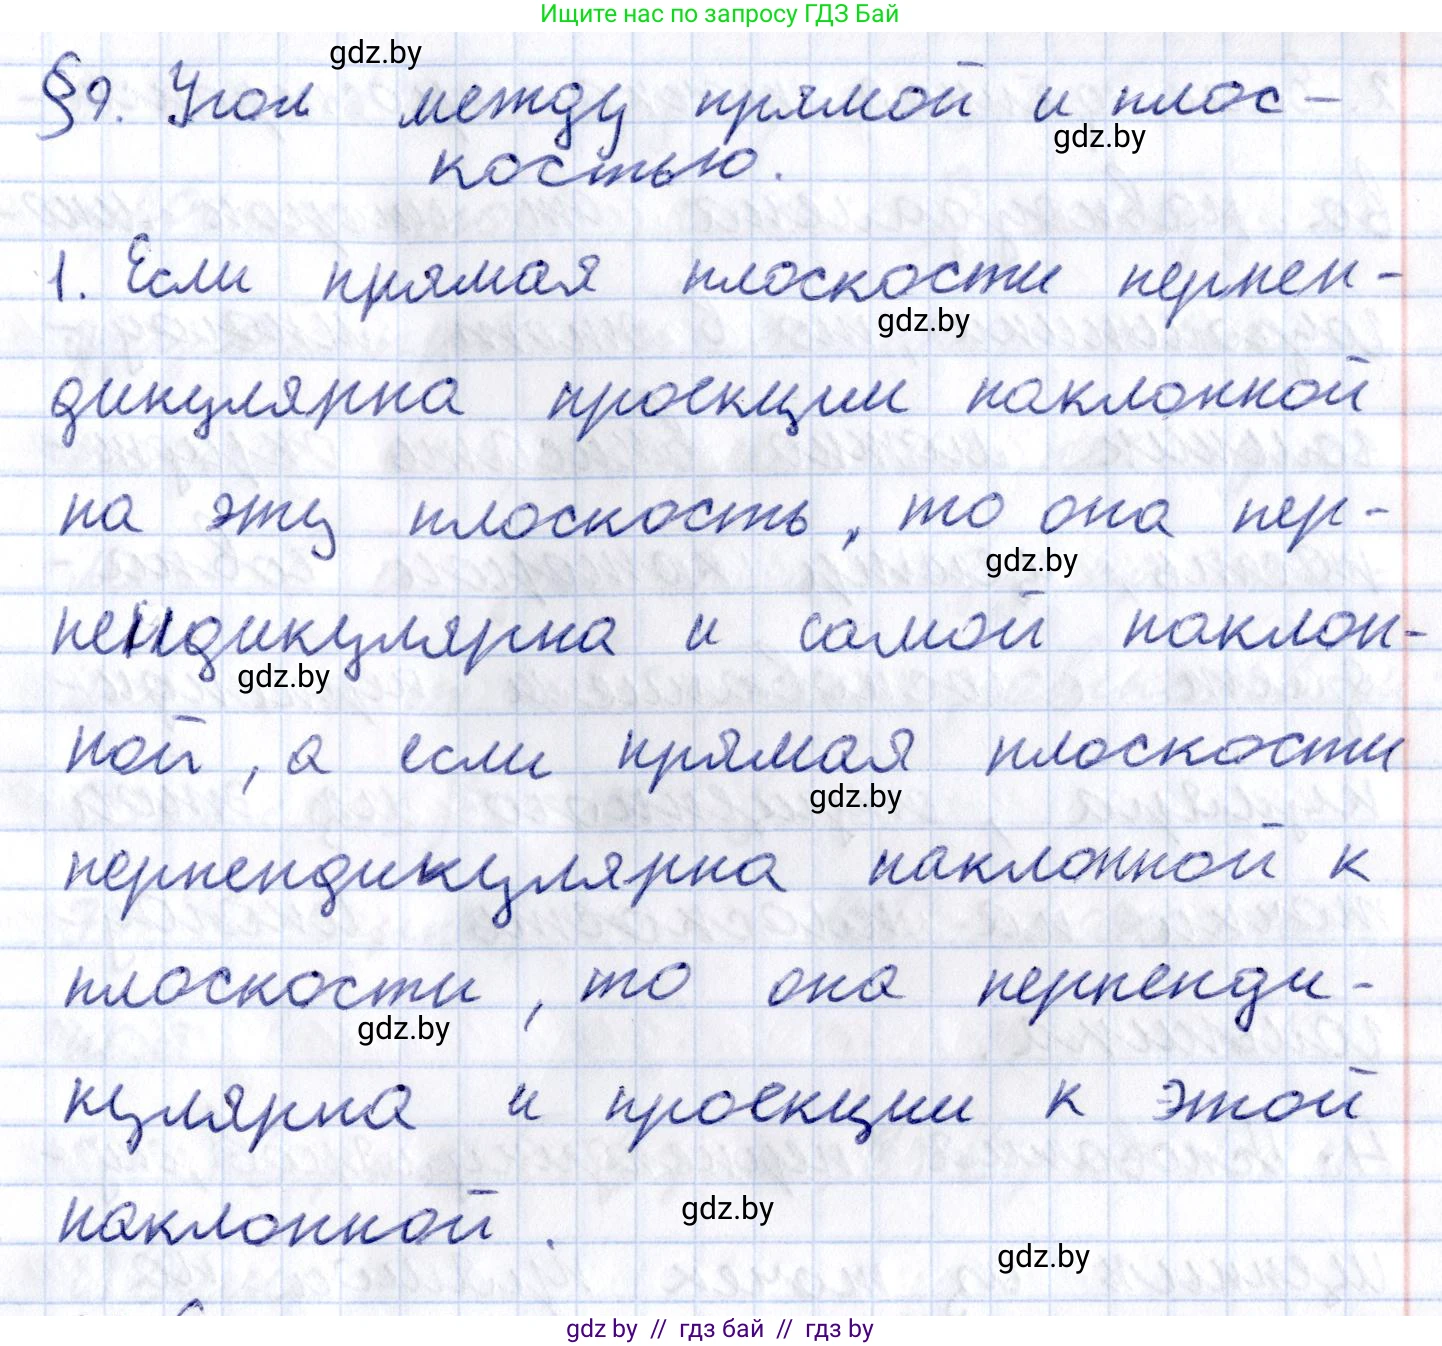 Ищите нас по запросу ГДЗ Бай
gdz.by
§9. Угол между прямой и плос-
gdz.by
костью.
1. Если прямая плоскости перпен-
gdz.by
дикулярна проекции наклонной
на эту плоскость, то она пер-
gdz.by
пендикулярна и самой наклон-
gdz.by
ной, а если прямая плоскости
gdz.by
перпендикулярна наклонной к
плоскости, то она перпенди-
gdz.by
кулярна и проекции к этой
наклонной.
gdz.by
gdz.by
gdz by // гдз бай // гдз by